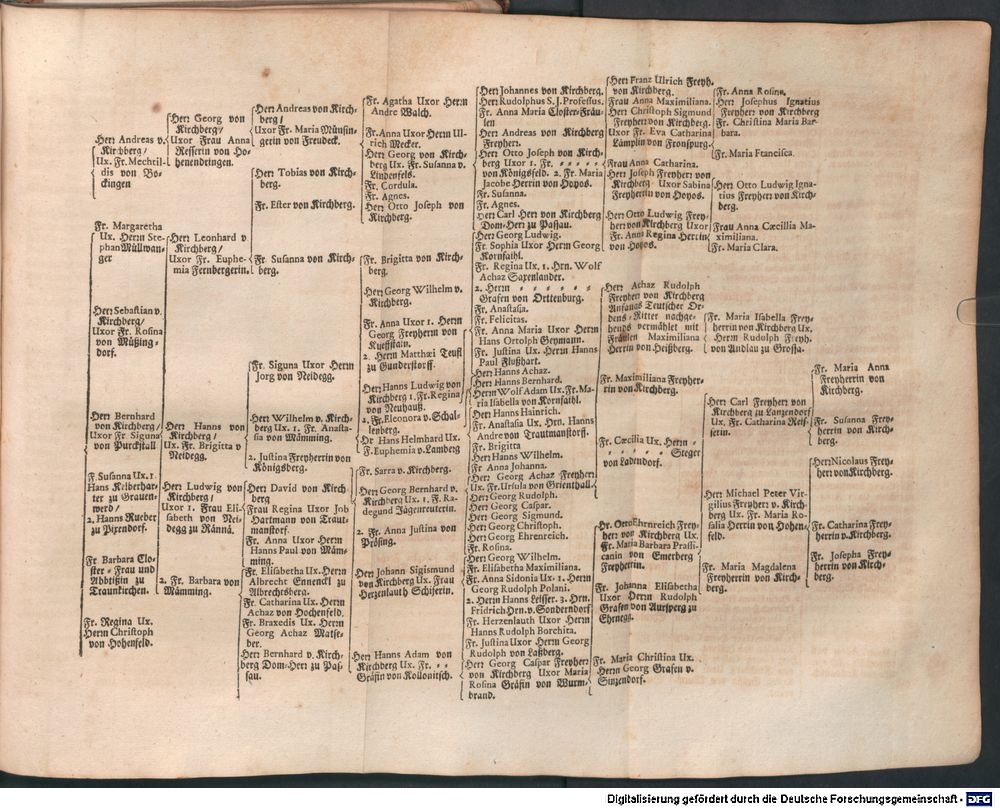 Herr Andreas v.
Kirchberg/
Ux. Fr. Mechtil-
dis von Bo-
ckingen
Fr. Margaretha
Ux. Herrn Ste-
phan Müllwan-
ger
Herr Sebastian v.
Kirchberg/
Uxor Fr. Rosina
von Müßing-
dorf.
Herr Bernhard
von Kirchberg/
Uxor Fr. Siguna
von Purckstall
F. Susanna Ux. 1.
Hans Kelberhar-
ter zu Grauen-
werd/
2. Hanns Rueber
zu Pixendorf.
Fr. Barbara Clo-
ster-Frau und
Abbtißin zu
Traunkirchen.
Fr. Regina Ux.
Herrn Christoph
von Hohenfeld.
Herr Georg von
Kirchberg/
Uxor Frau Anna
Resserin von Ho-
henendringen.
Herr Leonhard v.
Kirchberg/
Uxor Fr. Euphe-
mia Fernbergerin.
Herr Hanns von
Kirchberg/
Ux. Fr. Brigitta v.
Neidegg.
Herr Ludwig von
Kirchberg/
Uxor 1. Frau Eli-
sabeth von Nei-
degg zu Ränna.
2. Fr. Barbara von
Mämming.
Herr Andreas von Kirch-
berg/
Uxor Fr. Maria Münsin-
gerin von Freudeck.
Herr Tobias von Kirch-
berg.
Fr. Ester von Kirchberg.
Fr. Susanna von Kirch-
berg.
Fr. Siguna Uxor Herrn
Jorg von Neidegg.
Herr Wilhelm v. Kirch-
berg Ux. 1. Fr. Anasta-
sia von Mämming.
2. Justina Freyherrin von
Königsberg.
Herr David von Kirch-
berg
Frau Regina Uxor Job
Hartmann von Traut-
manstorf.
Fr. Anna Uxor Herrn
Hanns Paul von Mäm-
ming.
Fr. Elisabetha Ux. Herrn
Albrecht Ennenckl zu
Albrechtsberg.
Fr. Catharina Ux. Herrn
Achaz von Hochenfeld.
Fr. Braxedis Ux. Herrn
Georg Achaz Matse-
ber.
Herr Bernhard v. Kirch-
berg Dom-Herr zu Pas-
sau.
Fr. Agatha Uxor Herrn
Andre Walch.
Fr. Anna Uxor Herrn Ul-
rich Mecker.
Herr Georg von Kirch-
berg Ux. Fr. Susanna v.
Lindenfels.
Fr. Cordula.
Fr. Agnes.
Herr Otto Joseph von
Kirchberg.
Fr. Brigitta von Kirch-
berg.
Herr Georg Wilhelm v.
Kirchberg.
Fr. Anna Uxor 1. Herrn
Georg Freyherrn von
Kueffstain.
2. Herrn Matthæi Teufl
zu Gunderstorff.
Herr Hanns Ludwig von
Kirchberg 1. Fr. Regina
von Neuhauß.
2. Fr. Eleonora v. Schal-
lenberg.
Hr Hans Helmhard Ux.
F. Euphemia v. Lamberg
Fr. Sarra v. Kirchberg.
Herr Georg Bernhard v.
Kirchberg Ux. 1. F. Ra-
degund Jägenreuterin.
2. Fr. Anna Justina von
Prösing.
Herr Johann Sigismund
von Kirchberg Ux. Frau
Herzenlauth Schiferin.
Herr Hanns Adam von
Kirchberg Ux. Fr. - -
Gräfin von Kollonitsch.
Herr Johannes von Kirchberg.
Herr Rudolphus S. J. Professus.
Fr. Anna Maria Closter-Fräu-
len
Herr Andreas von Kirchberg
Freyherr.
Herr Otto Joseph von Kirch-
berg Uxor 1. Fr. - - - - -
von Königsfeld. 2. Fr. Maria
Jacobe Herrin von Hoyos.
Fr. Susanna.
Fr. Agnes.
Herr Carl Herr von Kirchberg
Dom-Herr zu Passau.
Herr Georg Ludwig.
Fr. Sophia Uxor Herrn Georg
Kornfaihl.
Fr. Regina Ux. 1. Hrn. Wolf
Achaz Saxenlander.
2. Herrn - - - - - -
Grafen von Orttenburg.
Fr. Anastasia.
Fr. Felicitas.
Fr. Anna Maria Uxor Herrn
Hans Ortolph Geymann.
Fr. Justina Ux. Herrn Hanns
Paul Flußhart.
Herr Hanns Achaz.
Herr Hanns Bernhard.
Herrn Wolf Adam Ux. Fr. Ma-
ria Isabella von Kornfaihl.
Herr Hanns Hainrich.
Fr. Anastasia Ux. Hrn. Hanns
Andre von Trautmanstorff.
Fr. Brigitta
Herr Hanns Wilhelm.
Fr. Anna Johanna.
Herr Georg Achaz Freyherr
Ux. Fr. Ursula von Grienthall.
Herr Georg Rudolph.
Herr Georg Caspar.
Herr Georg Sigmund.
Herr Georg Christoph.
Herr Georg Ehrenreich.
Fr. Rosina.
Herr Georg Wilhelm.
Fr. Elisabetha Maximiliana.
Fr. Anna Sidonia Ux. 1. Herrn
Georg Rudolph Polani.
2. Herrn Hanns Leisser. 3. Hrn.
Fridrich Hrn. v. Sonderndorf
Fr. Herzenlauth Uxor Herrn
Hanns Rudolph Borchita.
Fr. Justina Uxor Herrn Georg
Rudolph von Laßberg.
Herr Georg Caspar Freyherr
von Kirchberg Uxor Maria
Rosina Gräfin von Wurm-
brand.
Herr Franz Ulrich Freyh.
von Kirchberg.
Frau Anna Maximiliana.
Herr Christoph Sigmund
Freyherr von Kirchberg.
Uxor Fr. Eva Catharina
Lämplin von Fronspurg.
Frau Anna Catharina.
Herr Joseph Freyherr von
Kirchberg Uxor Sabina
Freyherrin von Hoyos.
Herr Otto Ludwig Frey-
herr von Kirchberg Uxor
Fr. Anna Regina Herrin
von Hoyos.
Herr Achaz Rudolph
Freyherr von Kirchberg
Anfangs Teutscher Or-
dens-Ritter nachge-
hends vermählet mit
Fräulen Maximiliana
Herrin von Heißberg.
Fr. Maximiliana Freyher-
rin von Kirchberg.
Fr. Cæcilia Ux. Herrn -
- - - - - Steger
von Ladendorf.
Hr. Otto Ehrnreich Frey-
herr von Kirchberg Ux.
Fr. Maria Barbara Prassi-
canin von Emerberg
Freyherrin.
Fr. Johanna Elisabetha
Uxor Herrn Rudolph
Grafen von Aursperg zu
Ehenegg.
Fr. Maria Christina Ux.
Herrn Georg Grafen v.
Sinzendorf.
Fr. Anna Rosina.
Herr Josephus Ignatius
Freyherr von Kirchberg
Fr. Christina Maria Bar-
bara.
Fr. Maria Francisca.
Herr Otto Ludwig Igna-
tius Freyherr von Kirch-
berg.
Frau Anna Cæcillia Ma-
ximiliana.
Fr. Maria Clara.
Fr. Maria Isabella Frey-
herrin von Kirchberg Ux.
Herrn Rudolph Freyh.
von Andlau zu Grossa.
Herr Carl Freyherr von
Kirchberg zu Lanzendorf
Ux. Fr. Catharina Reis-
serin.
Herr Michael Peter Vir-
gilius Freyherr v. Kirch-
berg Ux. Fr. Maria Ro-
salia Herrin von Hohen-
feld.
Fr. Maria Magdalena
Freyherrin von Kirch-
berg.
Fr. Maria Anna
Freyherrin von
Kirchberg.
Fr. Susanna Frey-
herrin von Kirch-
berg.
Herr Nicolaus Frey-
herr von Kirchberg.
Fr. Catharina Frey-
herrin v. Kirchberg.
Fr. Josepha Frey-
herrin von Kirch-
berg.
Digitalisierung gefördert durch die Deutsche Forschungsgemeinschaft - DFG